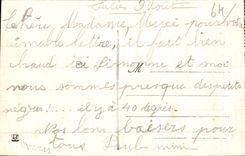 Salies 9 Août 64
Chère Madame, Merci pour votre
aimable lettre, il fait bien
chaud ici Simonne et moi
M
nous sommes presque des petits
nègres!... il y a 40 degrés.
Nos bons baisers pour
tous Paul mimi